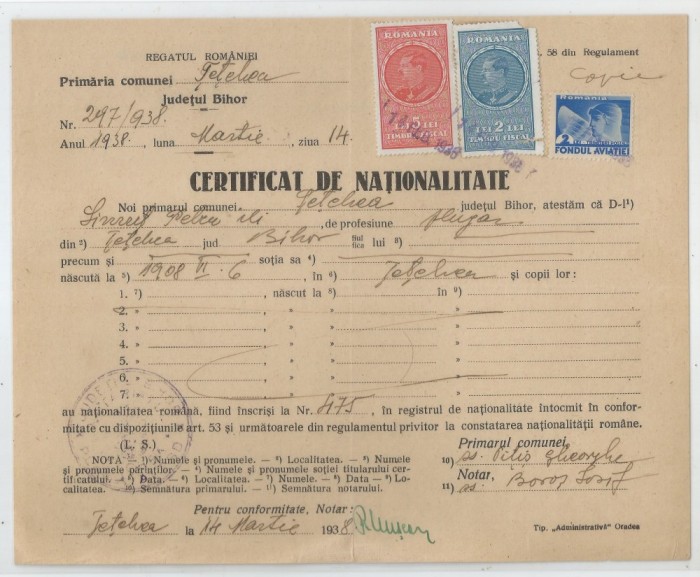 REGATUL ROMÂNIEI
Primăria comunei Țețchea
Județul Bihor
58 din Regulament
Copie
Nr. 297/938
Anul 1938, luna Martie, ziua 14.
ROMANIA
5 LEI
TIMBRU FISCAL
ROMANIA
LEI 2 LEI
TIMBRU FISCAL
România
2 LEI
FONDUL AVIAȚIEI
CERTIFICAT DE NAȚIONALITATE
Noi primarul comunei Țețchea județul Bihor, atestăm că D-l¹)
Petru, de profesiune plugar
din ²) Țețchea jud Bihor fiul fiica lui ³)
precum și soția sa ⁴)
născută la ⁵) 1908 VI. 6, în ⁶) Țețchea și copii lor :
1. ⁷) născut la ⁸) în ⁹)
2. » » »
3. » » »
4. » » »
5. » » »
6. » » »
7. » » »
au naționalitatea română, fiind înscriși la Nr. 475, în registrul de naționalitate întocmit în confor-
mitate cu dispozițiunile art. 53 și următoarele din regulamentul privitor la constatarea naționalității române.
(L. S.)
Primarul comunei,
NOTA ¹) Numele și pronumele. — ²) Localitatea. — ³) Numele
și pronumele părinților. — ⁴) Numele și pronumele soției titularului cer-
tificatului. ⁵) Data. — ⁶) Localitatea. ⁷) Numele. — ⁸) Data — ⁹) Lo-
calitatea. — ¹⁰) Semnătura primarului. ¹¹) Semnătura notarului.
10) ss. Pitiș Gheorghe
Notar,
11) ss. Boroș Iosif
Pentru conformitate, Notar:
Țețchea la 14 Martie 1938
Tip. „Administrativă" Oradea